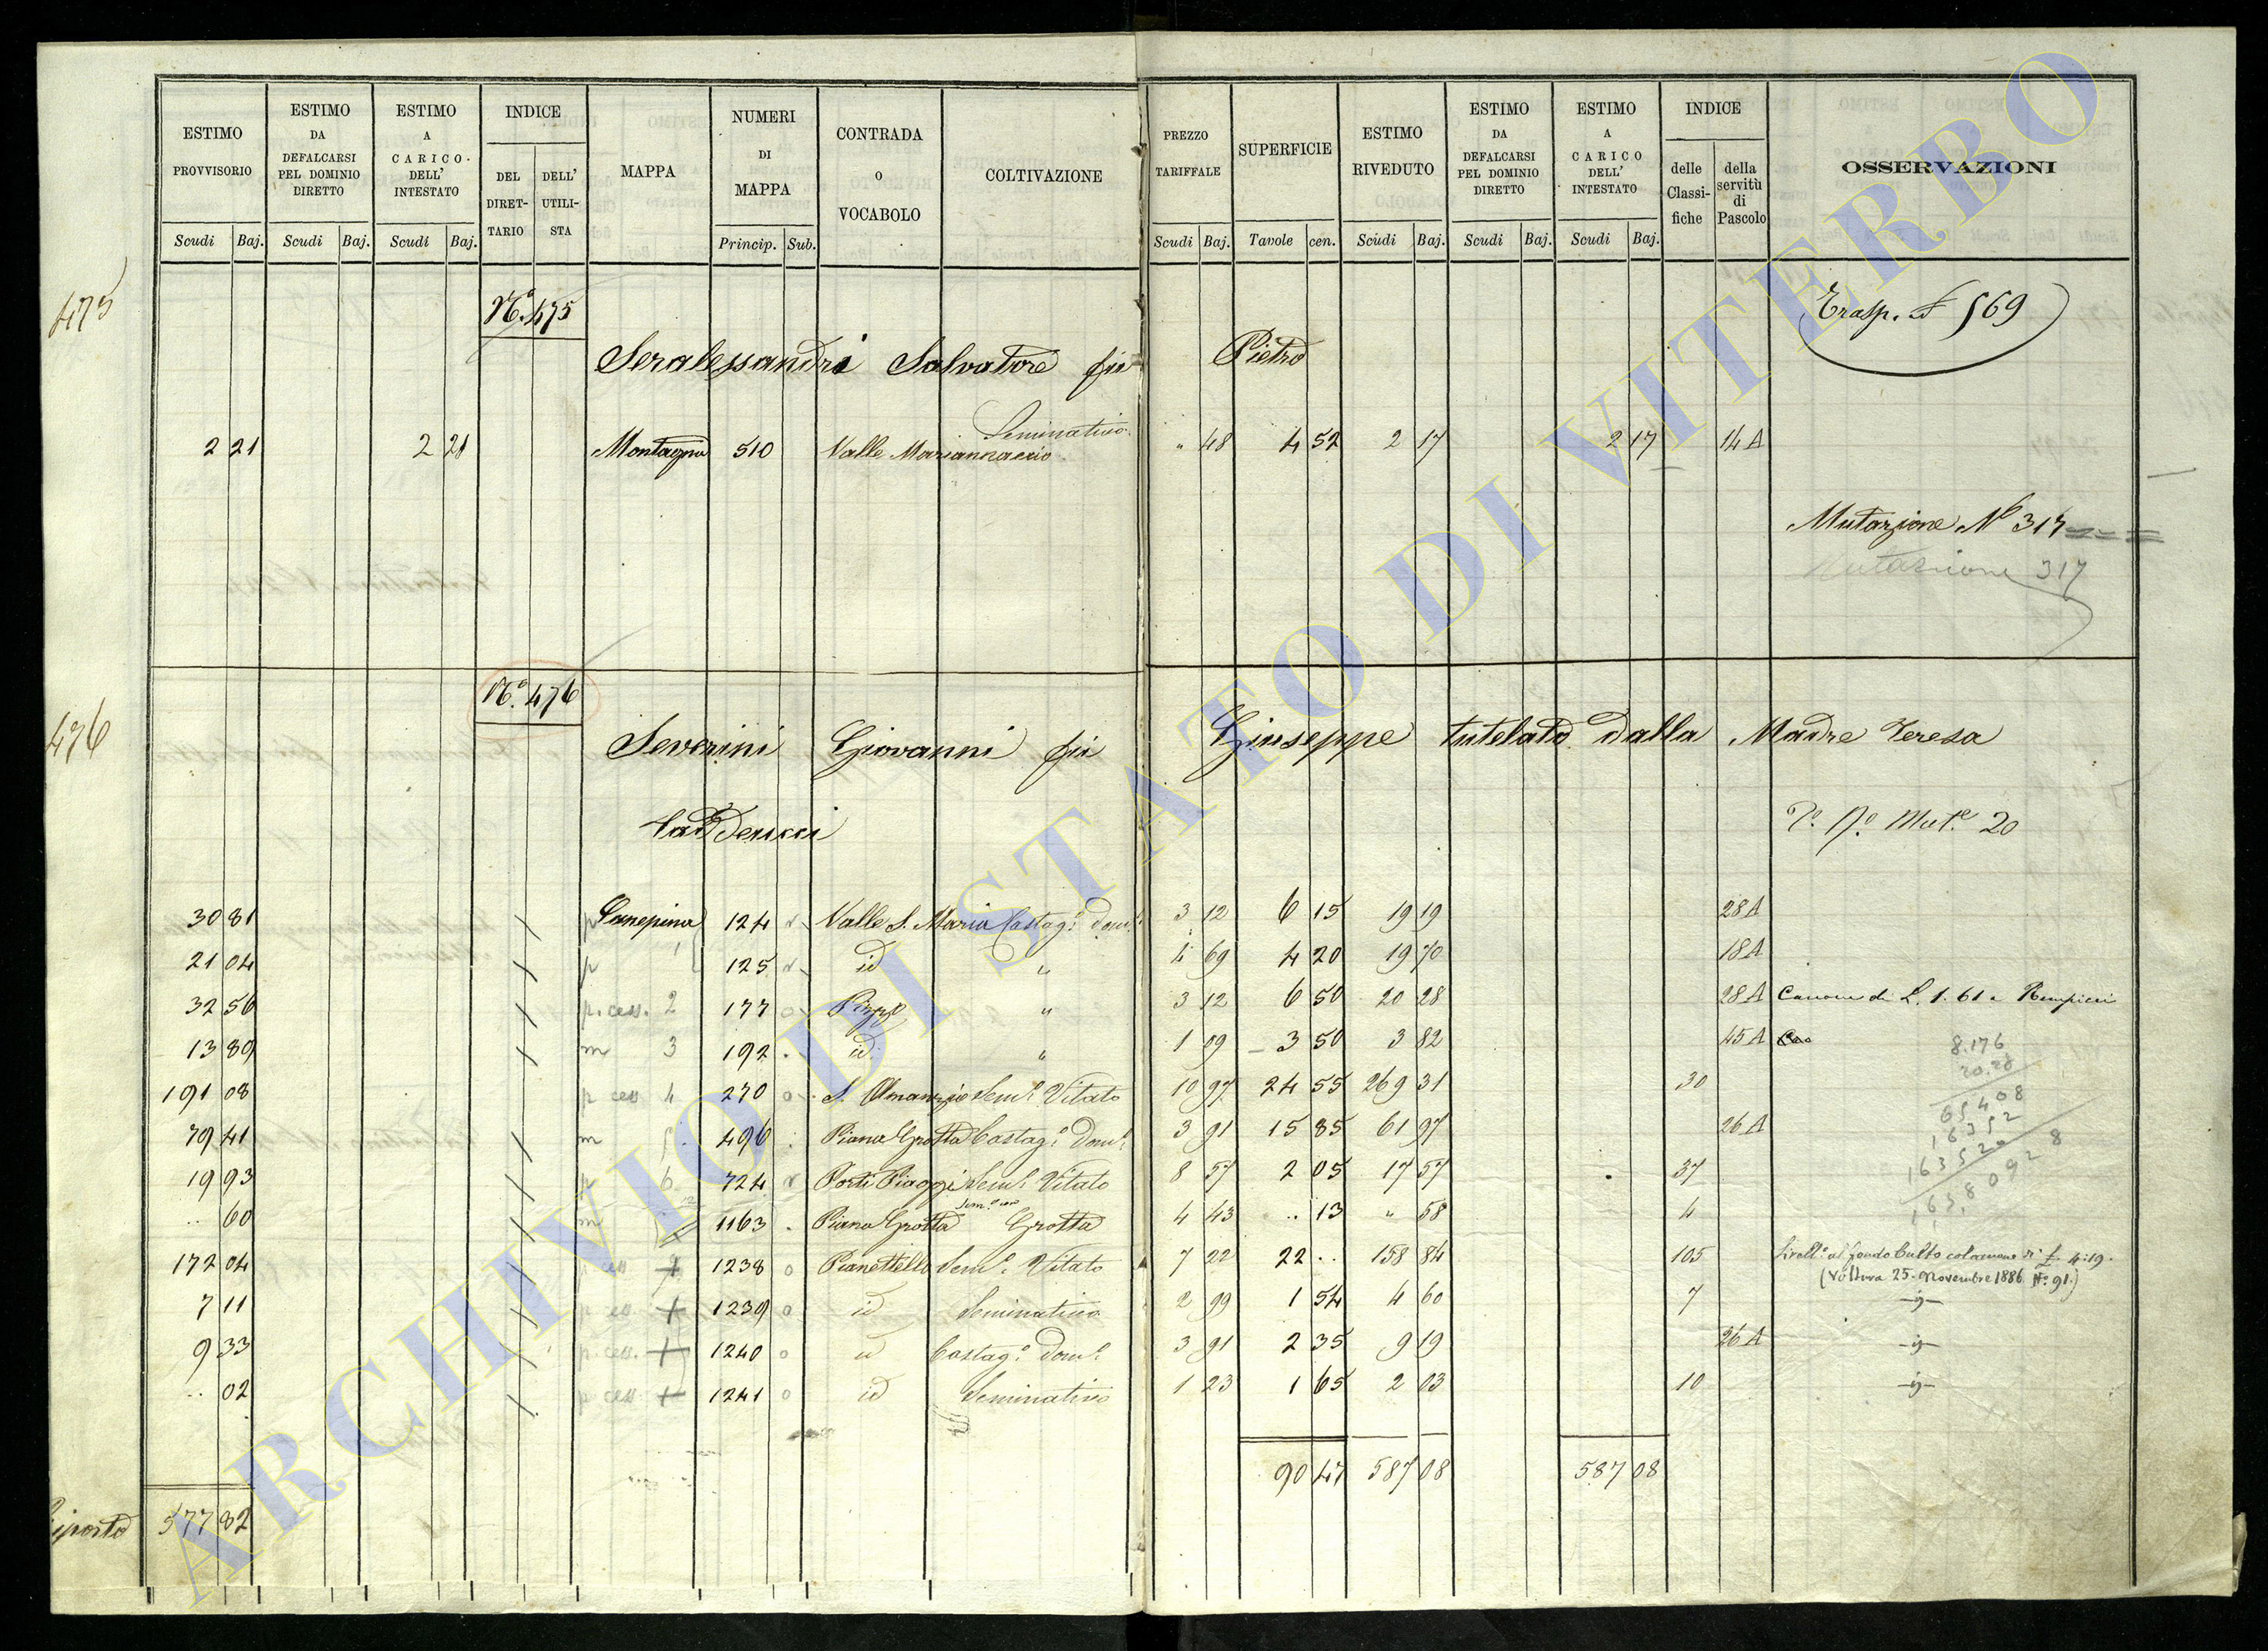 ESTIMO PROVVISORIO
ESTIMO DA DEFALCARSI PEL DOMINIO DIRETTO
ESTIMO A CARICO DELL' INTESTATO
INDICE
DEL DIRETTARIO
DELL' UTILISTA
MAPPA
NUMERI DI MAPPA
CONTRADA O VOCABOLO
COLTIVAZIONE
PREZZO TARIFFALE
SUPERFICIE
ESTIMO RIVEDUTO
ESTIMO DA DEFALCARSI PEL DOMINIO DIRETTO
ESTIMO A CARICO DELL' INTESTATO
INDICE
delle Classifiche
della servitù di Pascolo
OSSERVAZIONI
Scudi Baj. Scudi Baj. Scudi Baj. Princip. Sub. Scudi Baj. Tavole cen. Scudi Baj. Scudi Baj. Scudi Baj.
475
N.º 475
Trasp. 569
Seralessandri Salvatore fu Pietro
Seminativo
2 21 2 21 Montagna 510 Valle Mariannaccio " 48 4 52 2 17 2 17 14 A
Mutazione Nº 317
Mutazione 317
476
N.º 476
Severini Giovanni fu Giuseppe tutelato dalla Madre Teresa
Taddeucci
Mut.e 20
30 81 p Canepina 124 Valle S. Maria Castag.º dom.º 3 12 6 15 19 19 28 A
21 04 p 125 id " 4 69 4 20 19 70 18 A
32 56 p. cess. 2 177 o Pizzo " 3 12 6 50 20 28 28 A Canone di L. 1.61 a
13 89 m 3 192 id " 1 09 3 50 3 82 45 A
8.176
20.28
65408
16352
163520
191 08 p cess 4 270 o S. Amanzio Sem.º Vitato 10 97 24 55 269 31 30
79 41 m 5 496 Piana Grotta Castag.º Dom.º 3 91 15 85 61 97 26 A
19 93 p 6 724 Porti Piaggi Sem.º Vitato 8 57 2 05 17 57 37
.. 60 m 1163 Piana Grotta Grotta 4 43 .. 13 " 58 4
172 04 p cess 1238 o Pianettello Sem.º Vitato 7 22 22 .. 158 84 105 Livell.º al fondo Culto col canone di £ 4:19.
(Voltura 25. Novembre 1886 Nº 91.)
7 11 p cess 1239 o id Seminativo 2 99 1 54 4 60 7
9 33 p. cess. 1240 o id Castag.º Dom.º 3 91 2 35 9 19 26 A
.. 02 p cess 1241 o id Seminativo 1 23 1 65 2 03 10
90 47 587 08 587 08
Riporto 577 82
ARCHIVIO DI STATO DI VITERBO